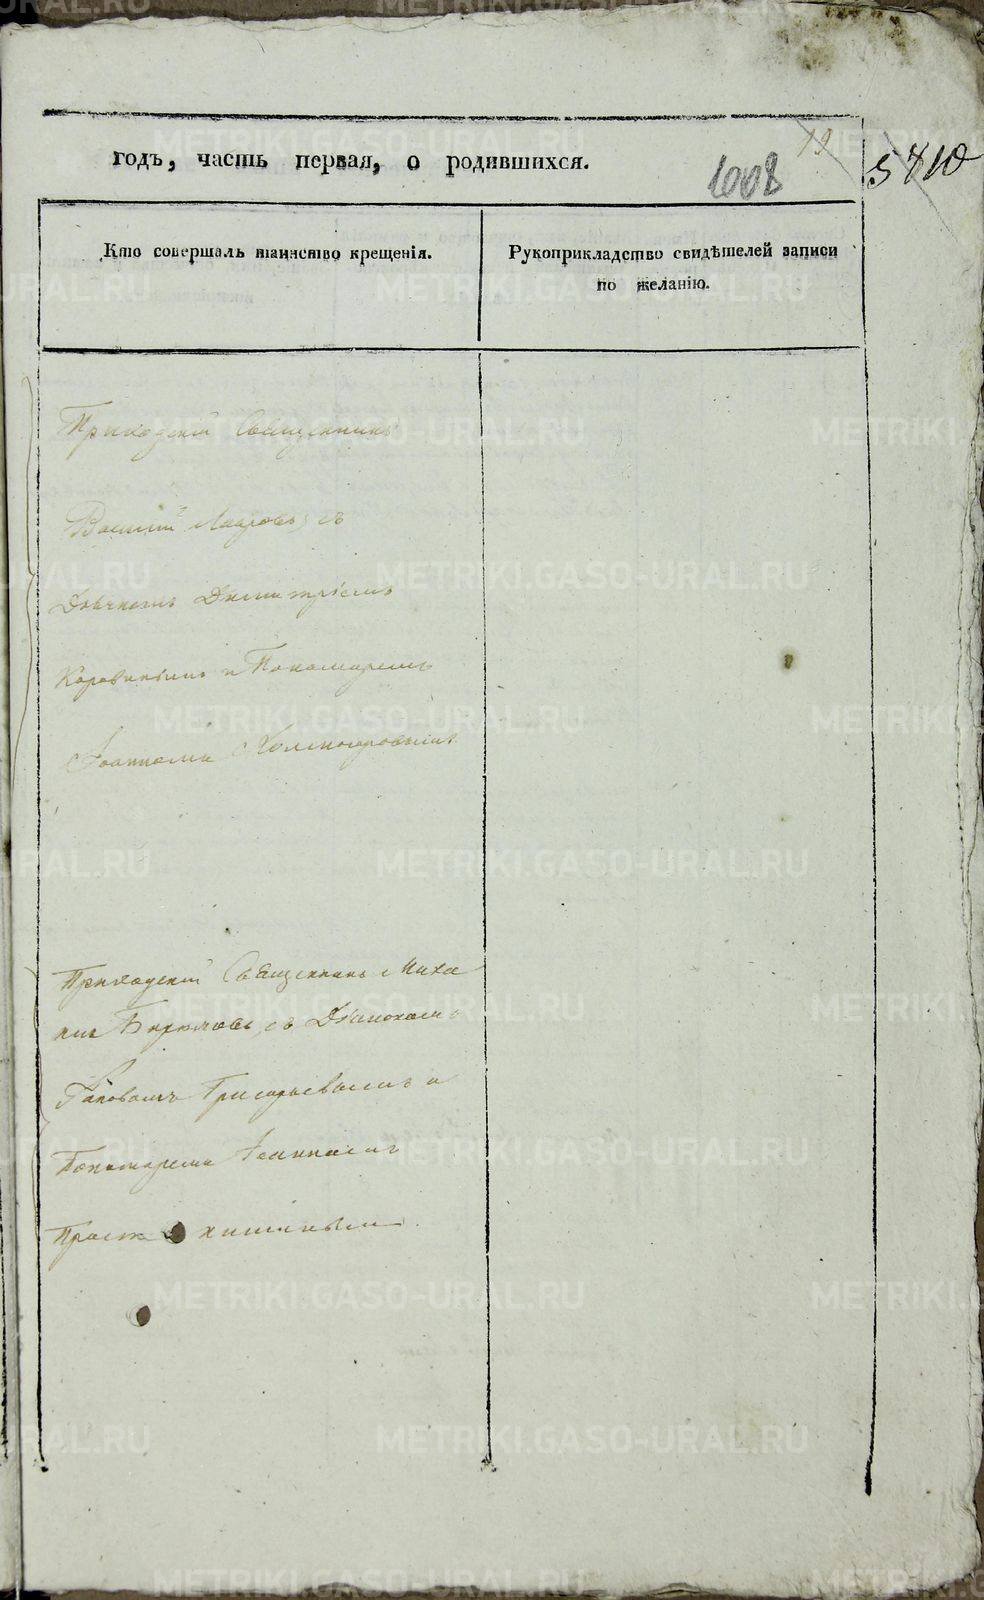 годъ, часть первая, о родившихся.
19
1008
5810
Кто совершалъ таинство крещенія.
Рукоприкладство свидѣтелей записи
по желанію.
Приходскій Священникъ
Василій Лавровъ, съ
Дьячкомъ Димитріемъ
и Пономаремъ
Іоанномъ Холмогоровымъ
Приходскій Священникъ Миха
илъ Бирюковъ, съ Діакономъ
Григорьевымъ и
Пономаремъ Іоанномъ
METRIKI.GASO-URAL.RU